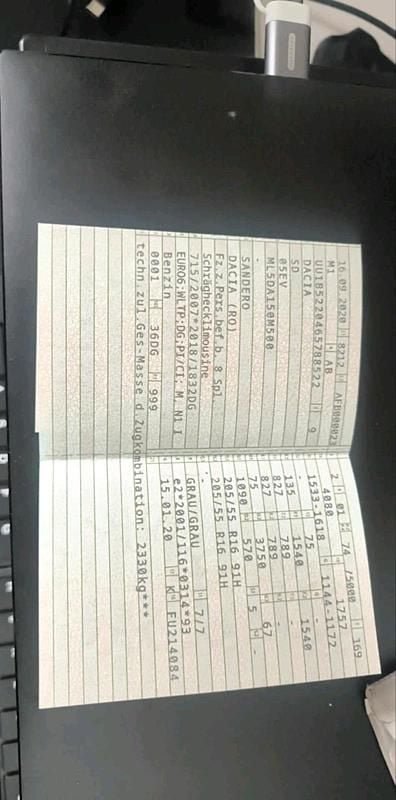 16.09.2020 8212 AFB000023
M1 AB
UU1B5220465788522 9
DACIA
SD
05EV
ML5DA150M500
-
SANDERO
DACIA (RO)
Fz.z.Pers.bef.b. 8 Spl.
Schräghecklimousine
715/2007*2018/1832DG
EURO6;WLTP;DG;PI/CI; M, N1 I
Benzin
0001 36DG 999
techn.zul.Ges-Masse d.Zugkombination: 2330kg***
2 01 74 /5000 169
4080 1757
1533-1618 1144-1172
75 -
- 1540 1540
135 - -
827 789 -
827 789 67
75 3750
1090 570 5 -
205/55 R16 91H
205/55 R16 91H
-
GRAU/GRAU 7/7
e2*2001/116*0314*93
15.01.20 K FU214084